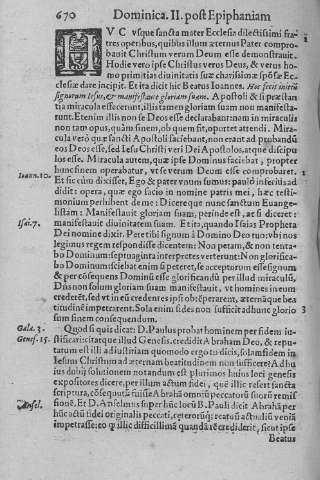 670 Dominica. II. post Epiphaniam
VC vsque sancta mater Ecclesia dilectissimi fra-
tres operibus, quibus illum æternus Pater compro-
bauit Christum verum Deum esse demonstrauit.
Hodie vero ipse Christus verus Deus, & verus ho-
mo primitias diuinitatis suæ charissimæ spōsæ Ec-
clesiæ dare incipit. Et ita dicit hic Beatus Ioannes. Hoc fecit initiū
signorum Iesus, & manifestauit gloriam suam. Apostoli & si præstan
tia miracula effecerunt, illis tamen gloriam suam non manifesta-
runt. Etenim illi non se Deos esse declarabant: nam in miraculis
non tam opus, quàm finem, ob quem fit, oportet attendi. Mira-
cula verò quæ sancti Apostoli faciebant, non erant ad probandū
eos Deos esse, sed Iesu Christi veri Dei Apostolos, atque discipu
los esse. Miracula autem, quæ ipse Dominus faciebat, propter
hunc finem operabatur, vt se verum Deum esse comprobaret.
Ioann. 10. Et sic cùm dixisset, Ego & pater vnum sumus: paulò inferiùs ad
didit: opera, quæ ego facio in nomine patris mei, hæc testi-
monium perhibent de me: Dicere que nunc sanctum Euange-
listam: Manifestauit gloriam suam, perinde est, ac si diceret:
Isai. 7. manifestauit diuinitatem suam. Et ita, quando Isaias Propheta
Dei nomine dixit. Pete tibi signum à Domino Deo tuo: vbi nos
legimus regem respondisse dicentem: Non petam, & non tenta-
bo Dominum: septuaginta interpretes verterunt: Non glorifica-
bo Dominum: sciebat enim si peteret, se accepturum esse signum
& per cōsequens Dominū esse glorificandū per illud miraculū,
Dñs non solum gloriam suam manifestauit, vt homines in eum
crederēt, sed vt in eū credentes ipsi obtēperarent, æternāque bea
titudinē impetrarent. Sola enim fides non sufficit ad hunc glorio
sum finem consequendum.
Gala. 3. Quod si quis dicat: D. Paulus probat hominem per fidem iu-
Genes. 15. stificari: citat que illud Genesis. credidit Abraham Deo, & repu-
tatum est illi ad iustitiam quomodo ergo tu dicis, solam fidem in
Iesum Christum ad æternam beatitudinem non sufficere? Ad hu
ius dubij solutionem notandum est plurimos huius loci genesis
expositores dicere, per illum actum fidei, quē illic refert sancta
scriptura, cōsequutū fuisse Abrahā omniū peccatorū suorū remis
Ansel. sionē. Et D. Anselmus super hūc locū B. Pauli dicit Abrahā per
hūc actū fidei originalis peccati, ceterorūq; reatū actualiū veniā
impetrasse: eo q illic difficillimā quandā rē crediderit, sicut ipse
Beatus